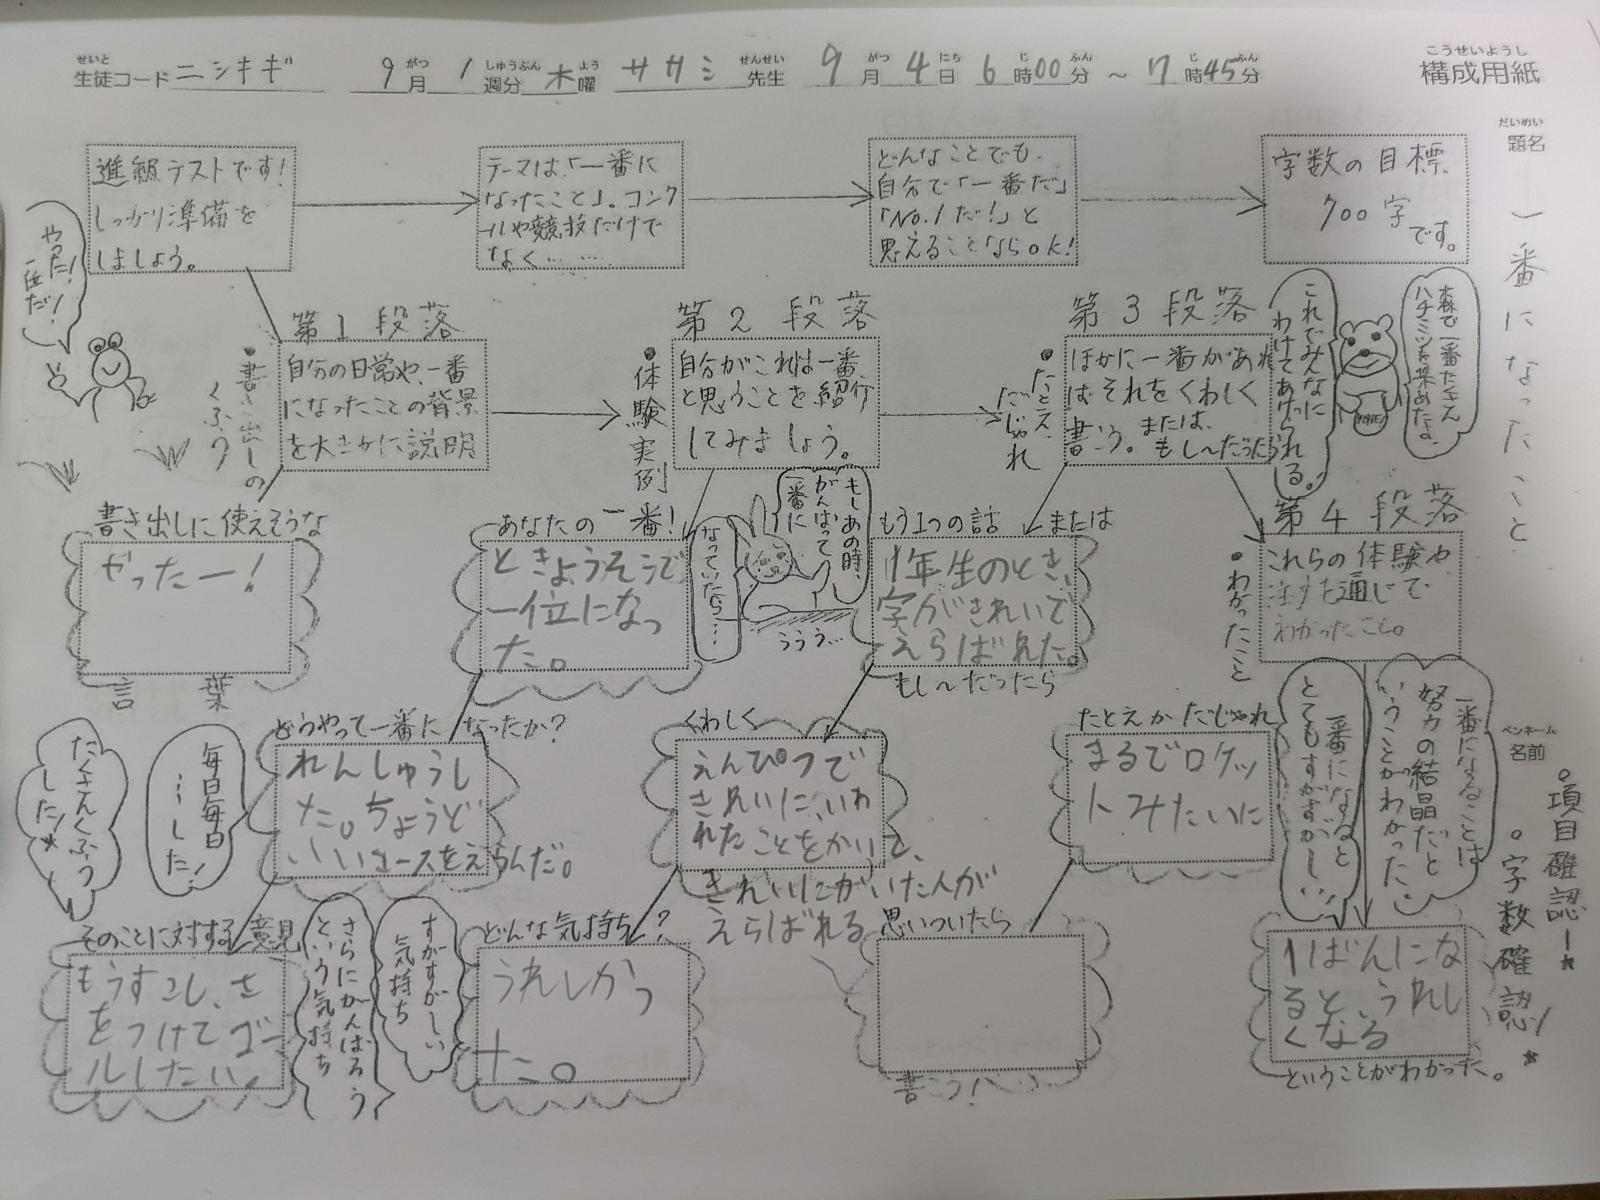 生徒コード ニシキギ 9月 1週分 木曜 ササミ 先生 9月 4日 6時00分 ~ 7時45分
構成用紙
題名 一番になったこと
進級テストです!
しっかり準備を
しましょう。
テーマは、「一番に
なったこと」。コンク
ールや競技だけで
なく……
どんなことでも、
自分で「一番だ」
「No.1だ!」と
思えることならOK!
字数の目標
700字
です。
やった!
一位だ!
第1段落
・書き出しの
くふう
自分の日常や、一番
になったことの背景
を大まかに説明
第2段落
・体験実例
自分がこれは一番
と思うことを紹介
してみましょう。
第3段落
・たとえ、
だじゃれ
ほかに一番があれ
ばそれをくわしく
書こう。または、
もし~だったら
これでみんなに
わけてあげられる。
森で一番たくさん
ハチミツを集めたよ。
書き出しに使えそうな
やったー!
言葉
あなたの一番!
ときょうそうで
一位になっ
た。
もしあの時、
がんばって
一番に
なっていたら……
ううう…
もう1つの話 または
1年生のとき、
字がきれいで
えらばれた。
もし~だったら
第4段落
・わかったこと
これらの体験や
注りた通じて
わかったこと。
どうやって一番になったか?
れんしゅうし
た。ちょうど
いいコースをえらんだ。
毎日毎日
…した!
たくさんくふう
した!
くわしく
えんぴつで
きれいに、いわ
れたことをかいて、
きれいにかいた人が
えらばれる
たとえかだじゃれ
まるでロケッ
トみたいに
一番になると
とてもすがすがしい
一番になることは
努力の結晶だと
いうことがわかった
ペンネーム
名前
・項目確認!
・字数確認!
そのことに対する意見
もうすこし、き
をつけてゴー
ルしたい。
さらにがんばろう
という気持ち
すがすがしい
気持ち
どんな気持ち?
うれしかっ
た。
思いついたら
書こう!
1ばんにな
ると、うれし
くなる
ということがわかった。